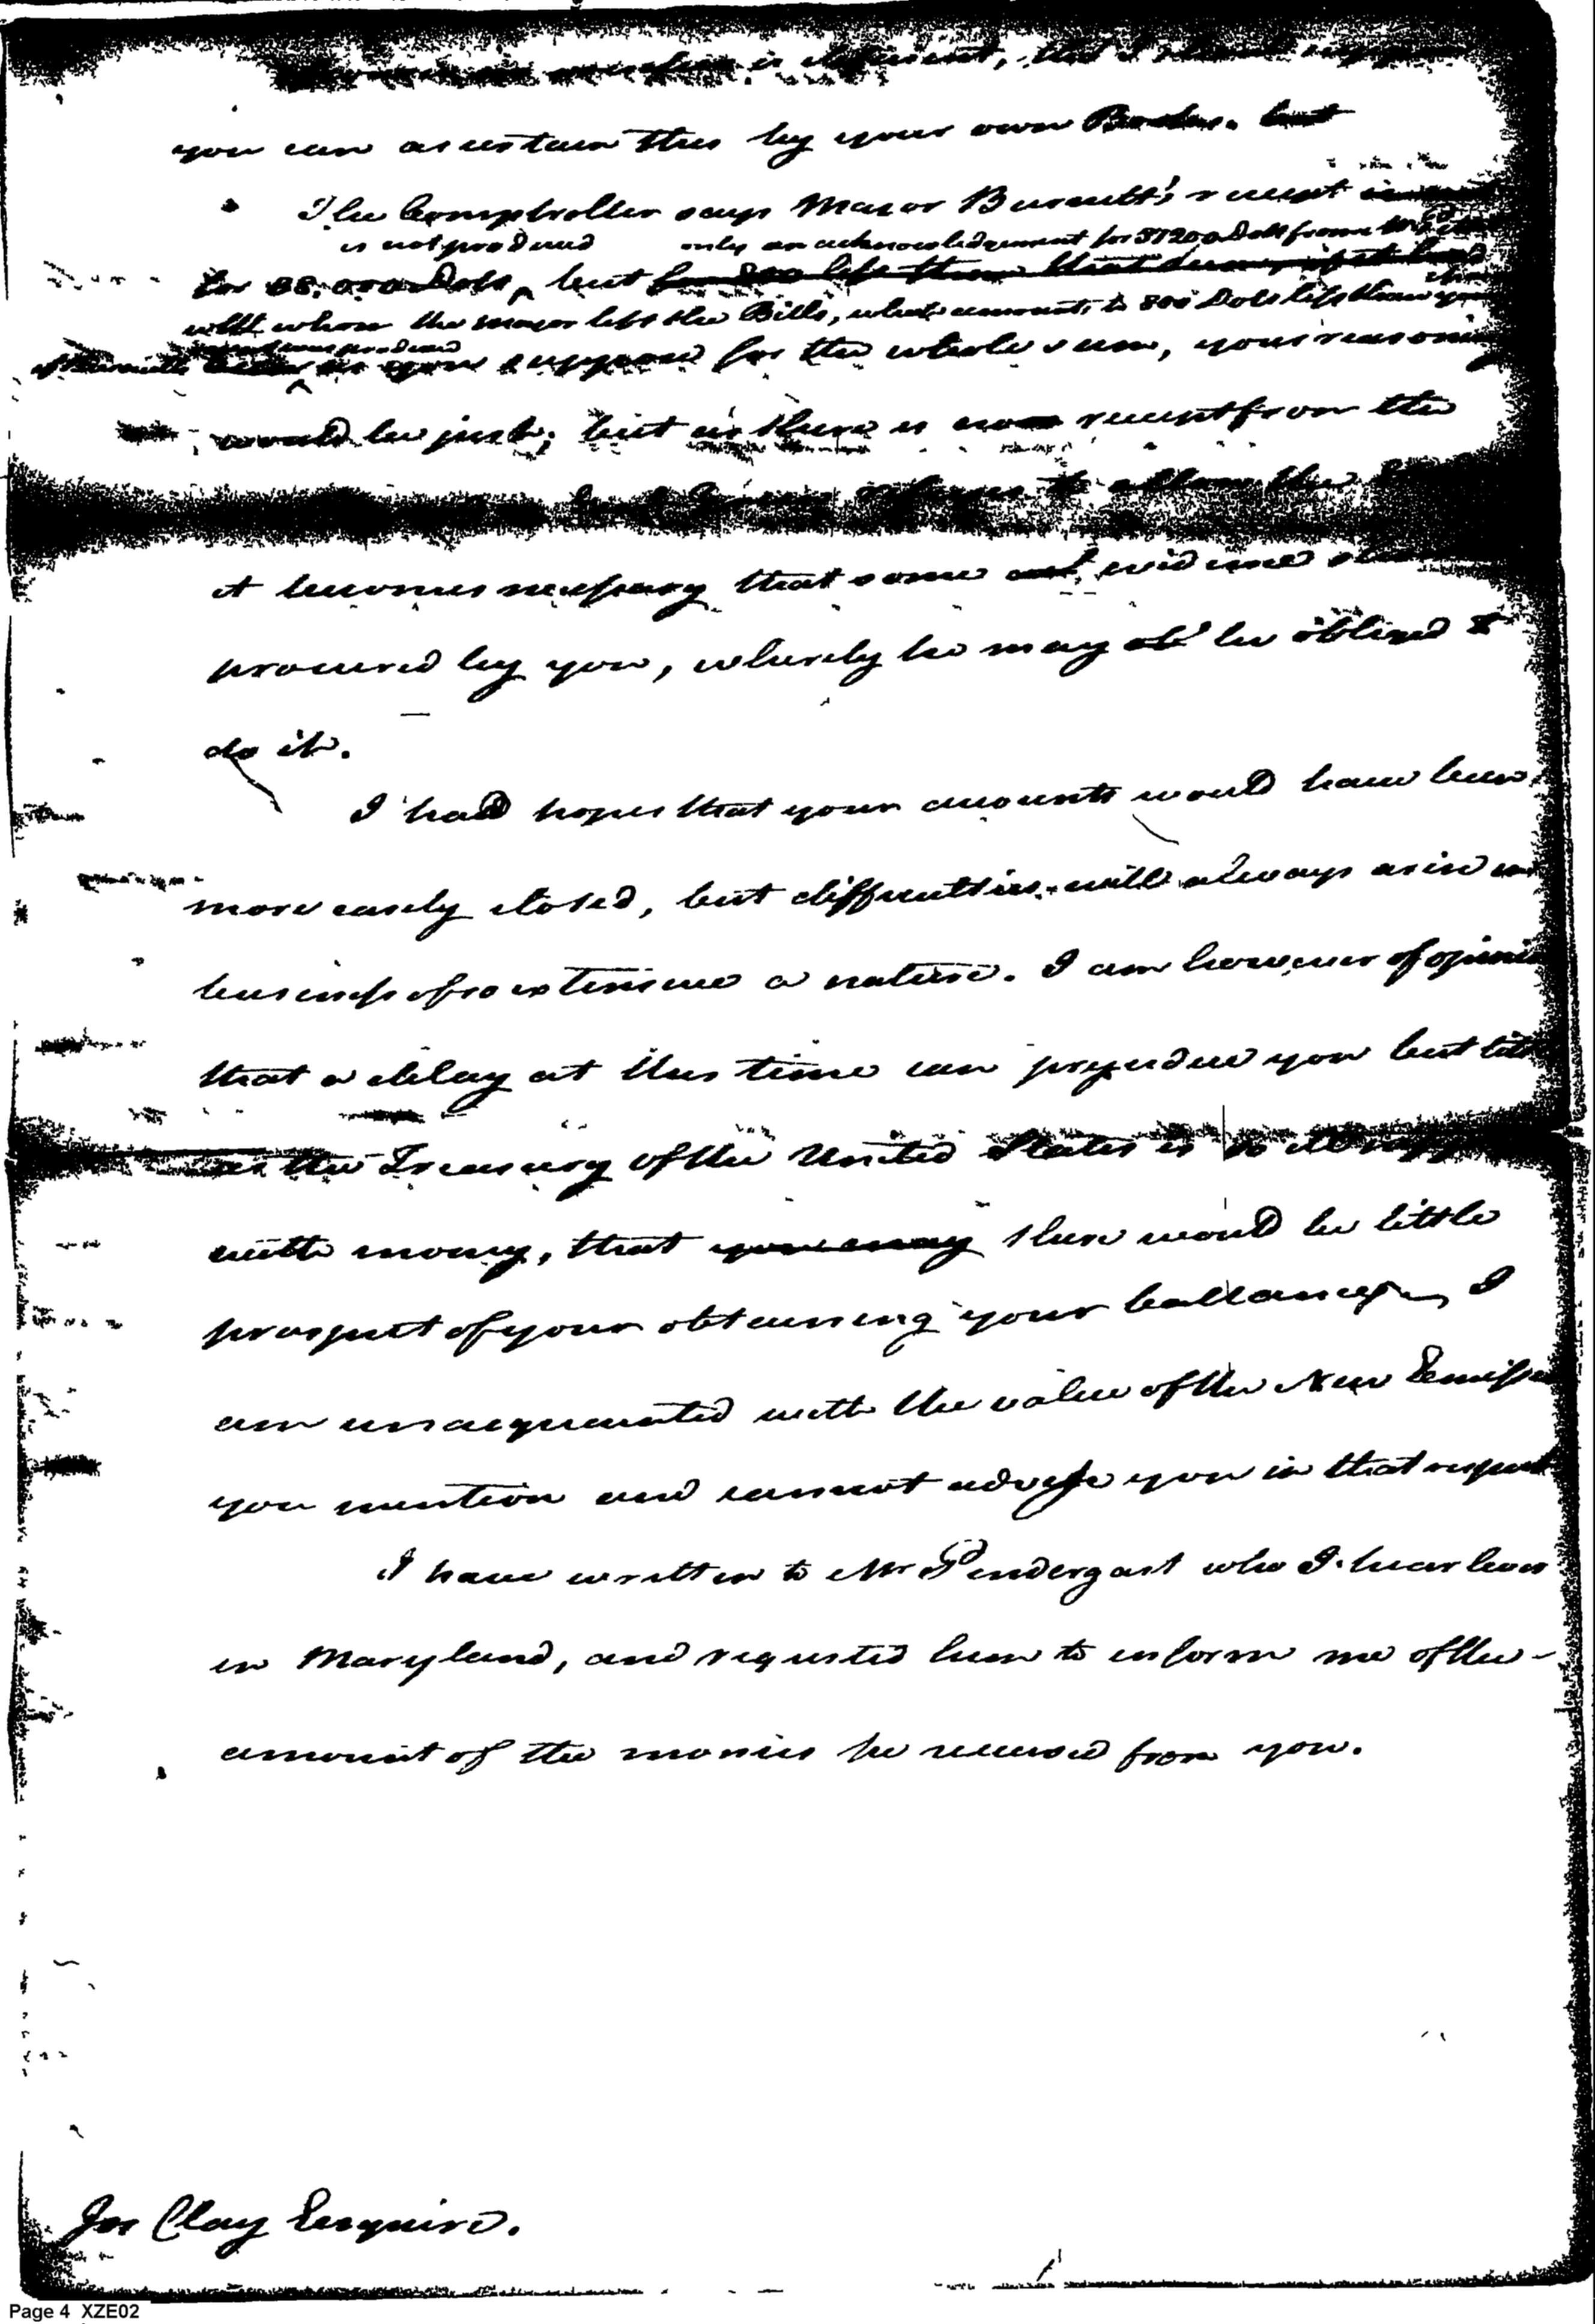 is different, that I should suppose
you can ascertain this by your own Books. but
The Comptroller says Major Burnett's receipt
is not produced only an acknowledgement for 37200 Dolls from
for 38,000 Dolls, but for 800 less than that sum,
with whom the major left the Bills, which amounts to 800 Dols less than your
receipt was produced
of Burnetts as you suppose for the whole sum, your reasoning
would be just; but as there is no receipt from the
refuses to allow the
it becomes necessary that some evidence
procured by you, whereby he may be obliged to
do it.
I had hopes that your accounts would have been
more easily closed, but difficulties will always arise in
business of so extensive a nature. I am however of opinion
that a delay at this time can prejudice you but little
as the Treasury of the United States is so ill
with money, that you may there would be little
prospect of your obtaining your ballance, I
am unacquainted with the value of the New Emission
you mention and cannot advise you in that respect
I have written to Mr Pendergast who I hear lives
in Maryland, and requested him to inform me of the
amount of the monies he received from you.
Jos Clay Esquire.
Page 4 XZE02